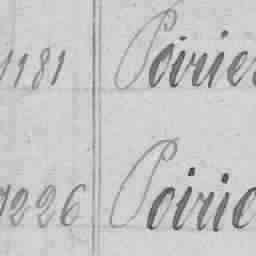 1181 Poirier
1226 Poirie